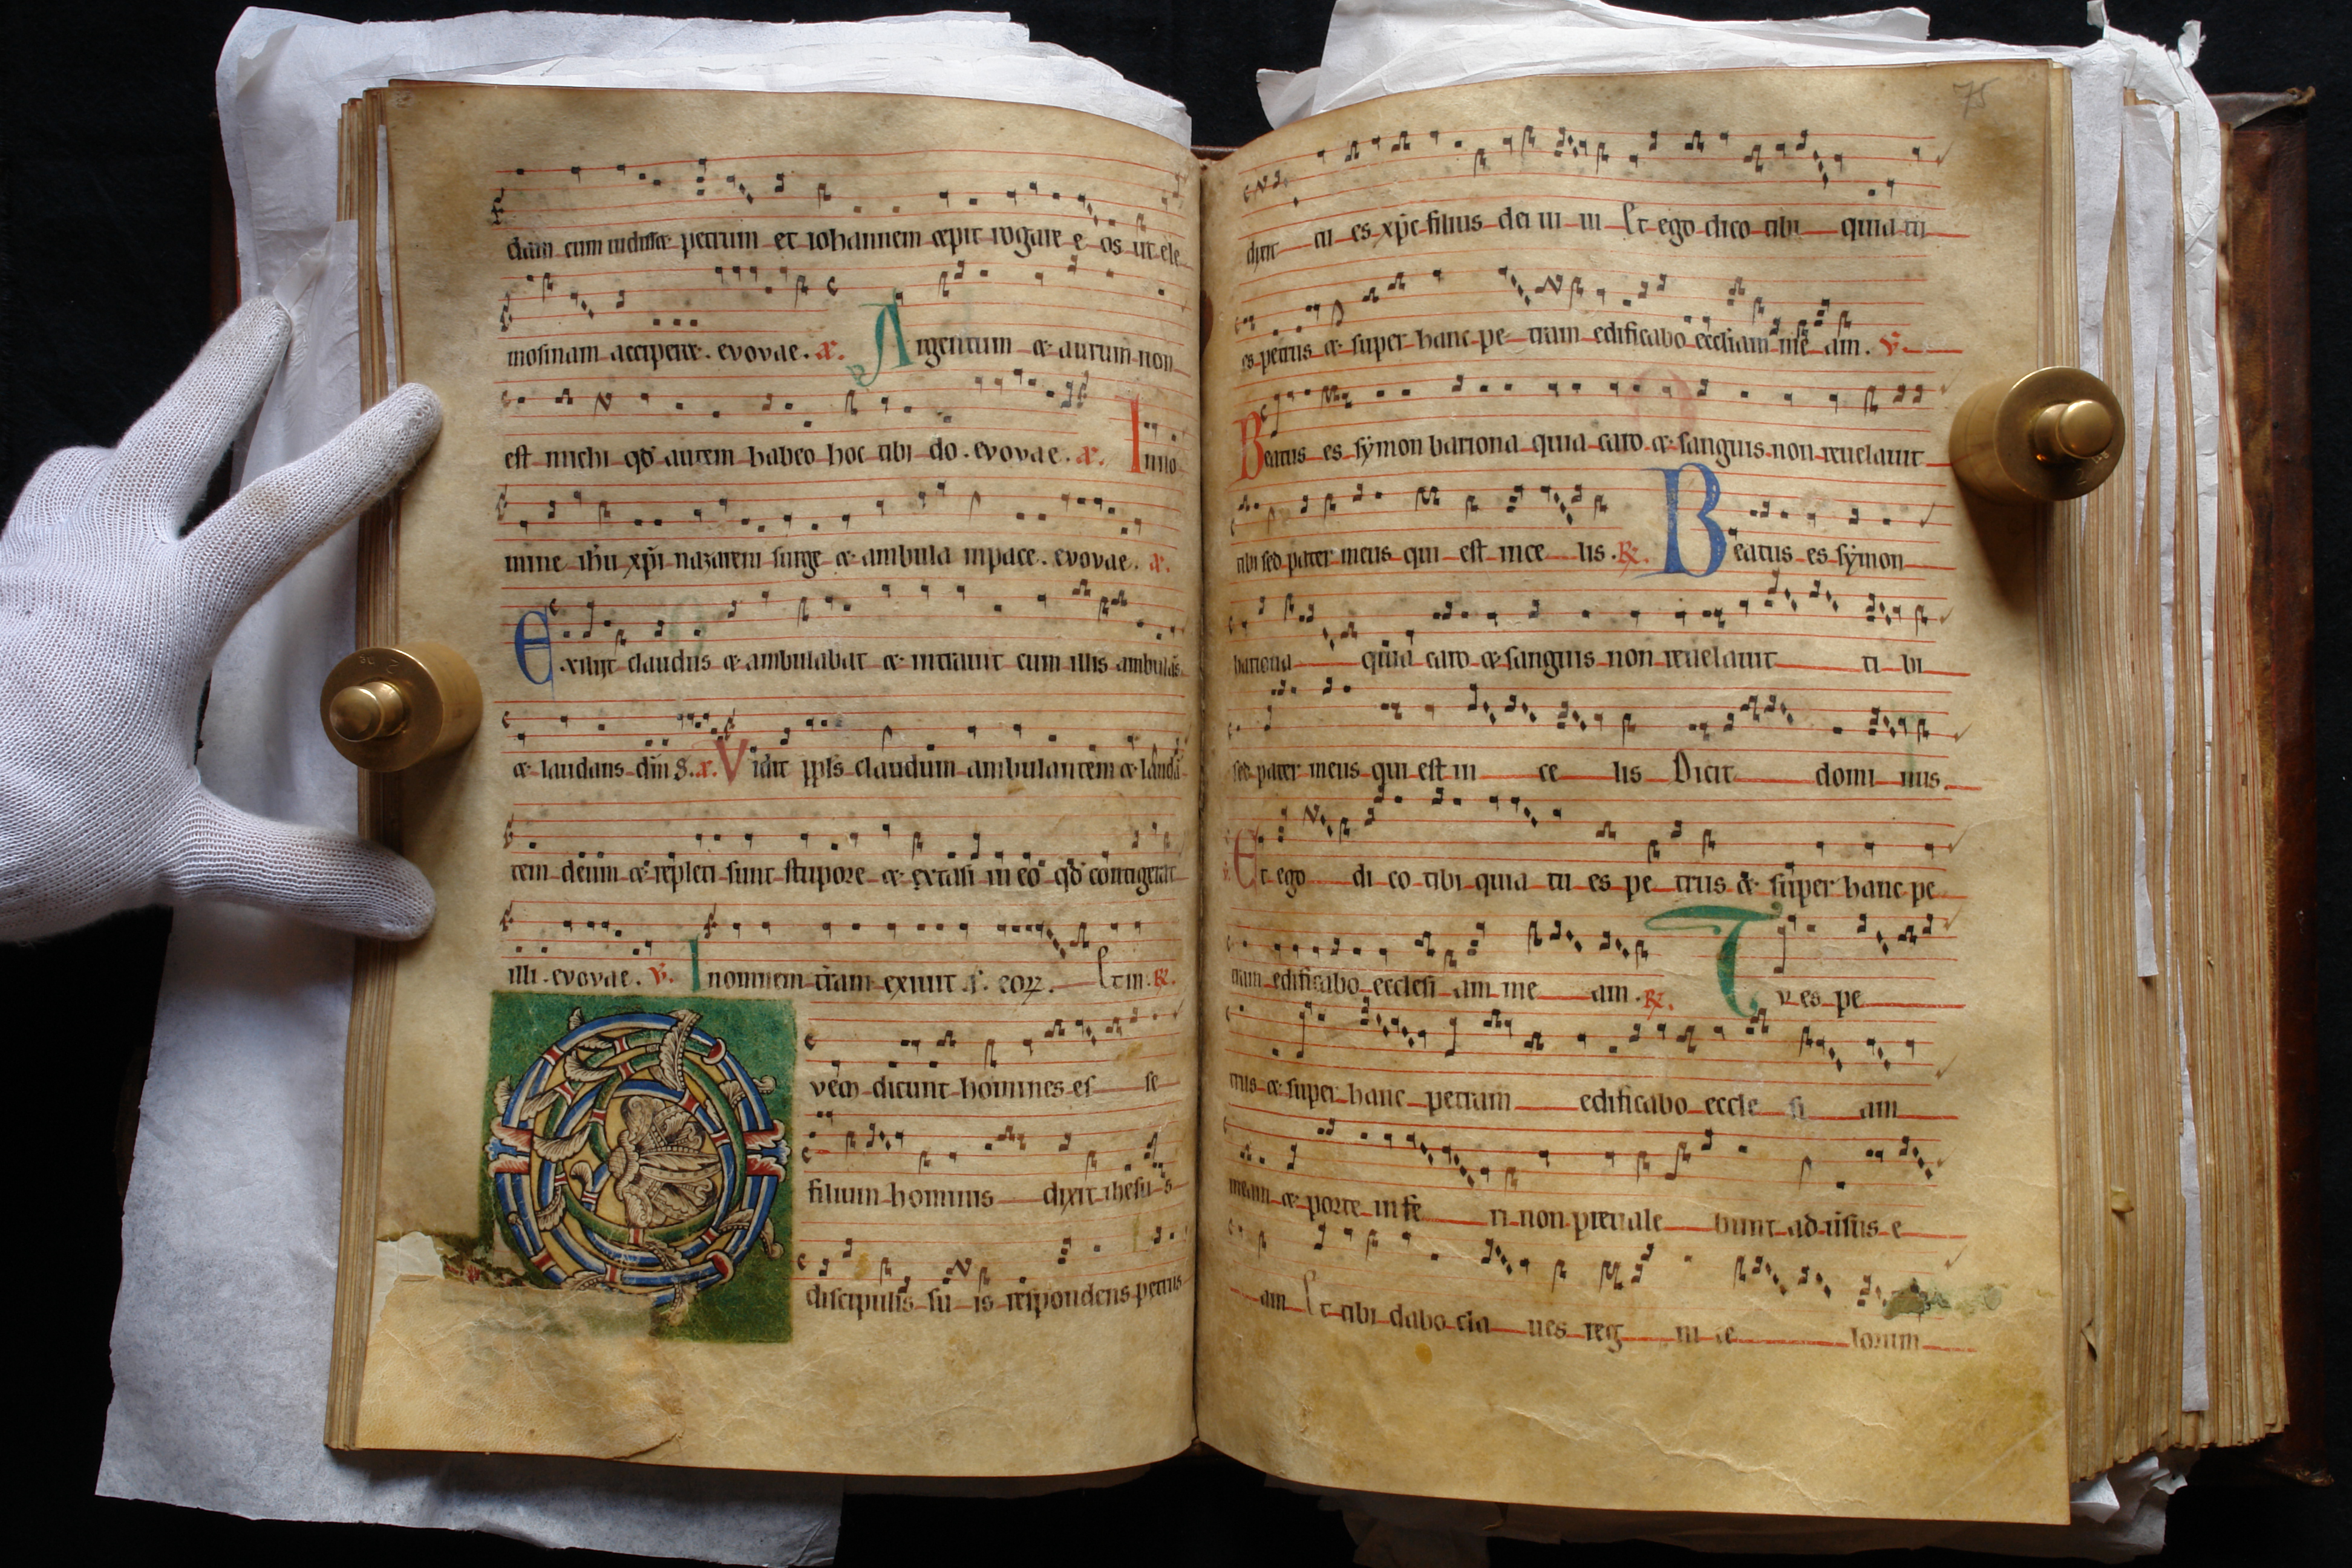 dam cum uidisset petrum et iohannem cepit rogare e os ut ele
mosinam acciperet. evovae. a. Argentum et aurum non
est michi qd autem habeo hoc tibi do. evovae. a. Inno
mine ihu xpi nazareni surge et ambula inpace. evovae. a.
Exiliit claudus et ambulabat et intrauit cum illis ambulās
et laudans dm̄ a. Vidit ppls claudum ambulantem et laudā
tem deum et repleti sunt stupore et extasi in eo qd contigerat
illi. evovae. v. Inomnem tram exiuit s. eoꝝ. Et in. R.
Quem dicunt homines es se
filium hominis dixit ihesus
discipulis su is respondens petrus
75
dixit tu es xpc filius dei ui ui Et ego dico tibi quia tu
es petrus et super hanc pe tram edificabo eccliam me am. v.
Beatus es symon bariona quia caro et sanguis non reuelauit
tibi sed pater meus qui est ince lis. R. Beatus es symon
bariona quia caro et sanguis non reuelauit ti bi
sed pater meus qui est in ce lis Dicit domi nus.
Et ego di co tibi quia tu es pe trus et super hanc pe
tram edificabo ecclesi am me am. R. Tu es pe
trus et super hanc petram edificabo eccle si am
meam et porte infe ri non preuale bunt aduersus e
am Et tibi dabo cla ues reg ni ce lorum